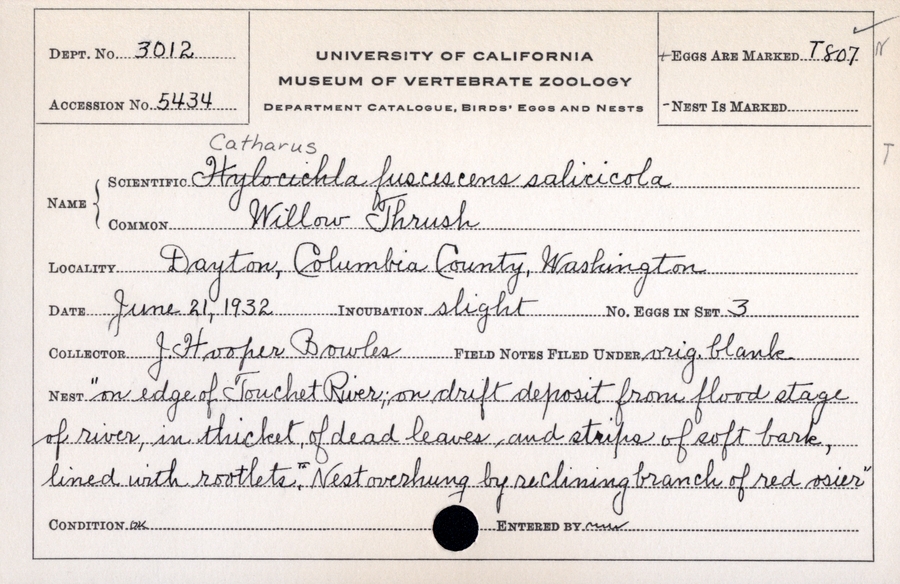 Dept. No. 3012
Accession No. 5434
UNIVERSITY OF CALIFORNIA
MUSEUM OF VERTEBRATE ZOOLOGY
Department Catalogue, Birds' Eggs and Nests
+Eggs Are Marked T807
N
-Nest Is Marked
T
Catharus
Name
Scientific Hylocichla fuscescens salicicola
Common Willow Thrush
Locality Dayton, Columbia County, Washington
Date June 21, 1932 Incubation slight No. Eggs in Set 3
Collector J. Hooper Bowles Field Notes Filed Under orig. blank
Nest "on edge of Touchet River; on drift deposit from flood stage
of river, in thicket, of dead leaves and strips of soft bark,
lined with rootlets." "Nest overhung by reclining branch of red osier"
Condition ok Entered by